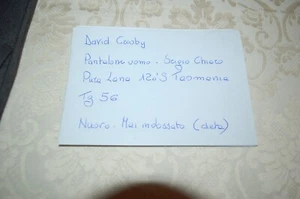 David Cowby
Pantalone uomo: Grigio Chiaro
Pura Lana 120'S Tasmania
Tg 56
Nuovo. Mai indossato (dieta)